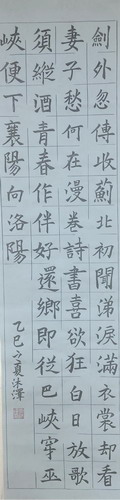 劍外忽傳收薊北初聞涕淚滿衣裳却看
妻子愁何在漫卷詩書喜欲狂白日放歌
須縱酒青春作伴好還鄉即從巴峽穿巫
峽便下襄陽向洛陽
乙巳之夏沐澤